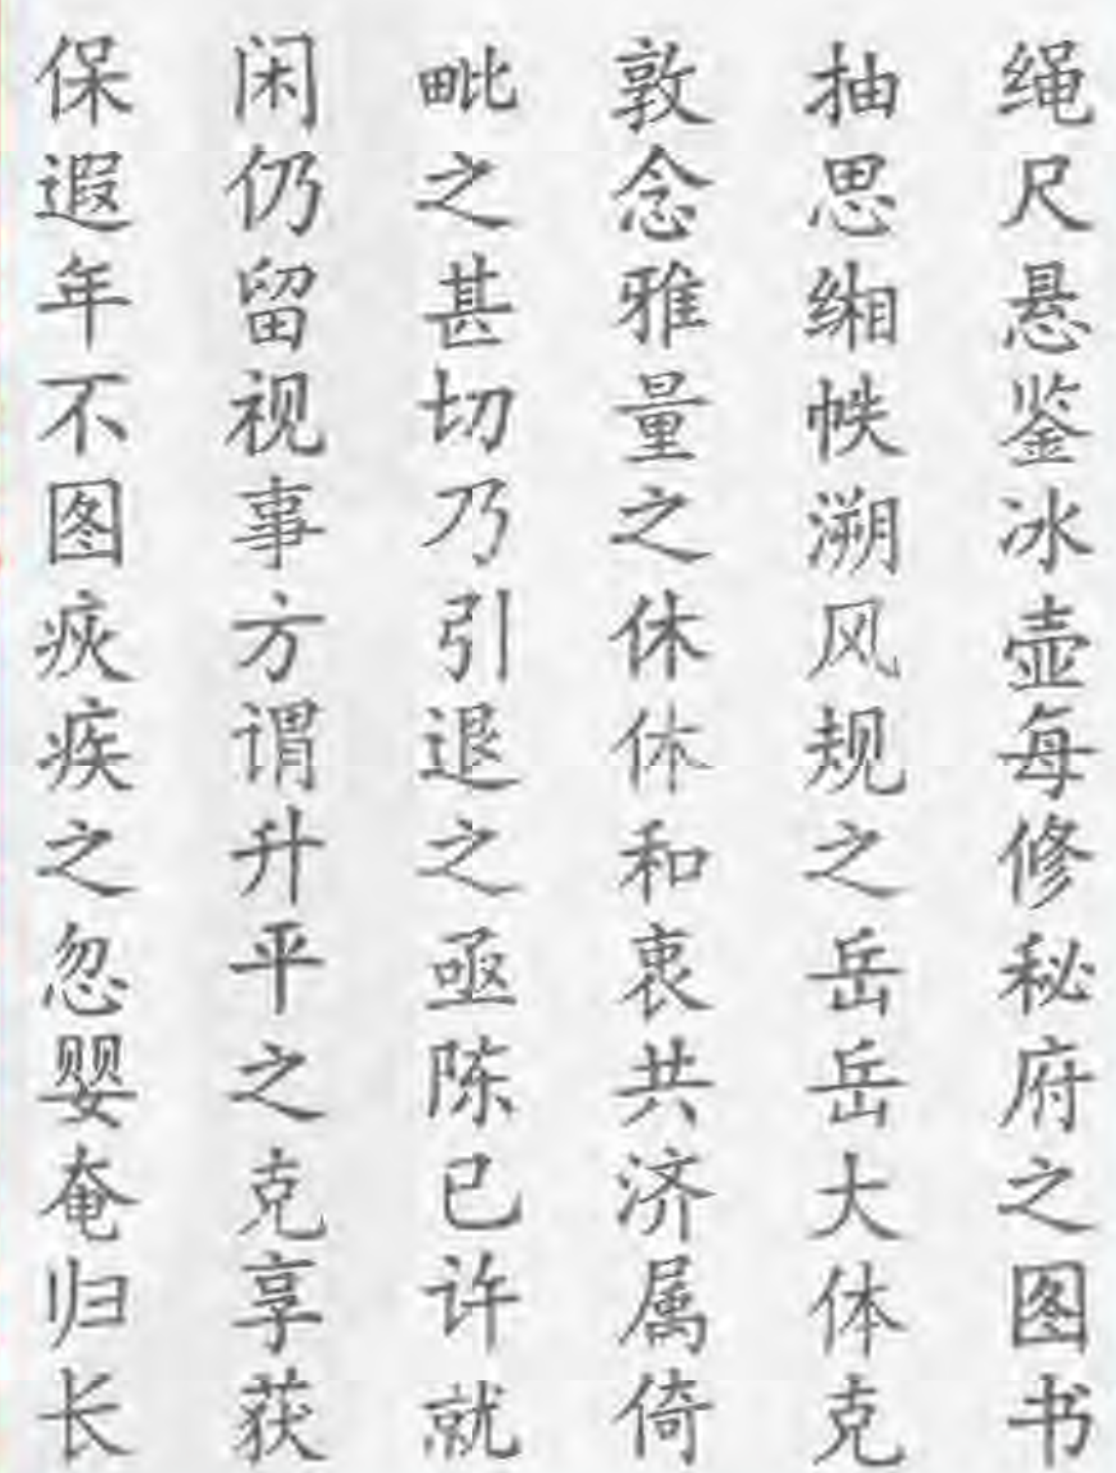 绳尺悬鉴冰壶每修秘府之图书
抽思缃帙溯风规之岳岳大体克
敦念雅量之休休和衷共济属倚
毗之甚切乃引退之亟陈已许就
闲仍留视事方谓升平之克享获
保遐年不图疢疾之忽婴奄归长